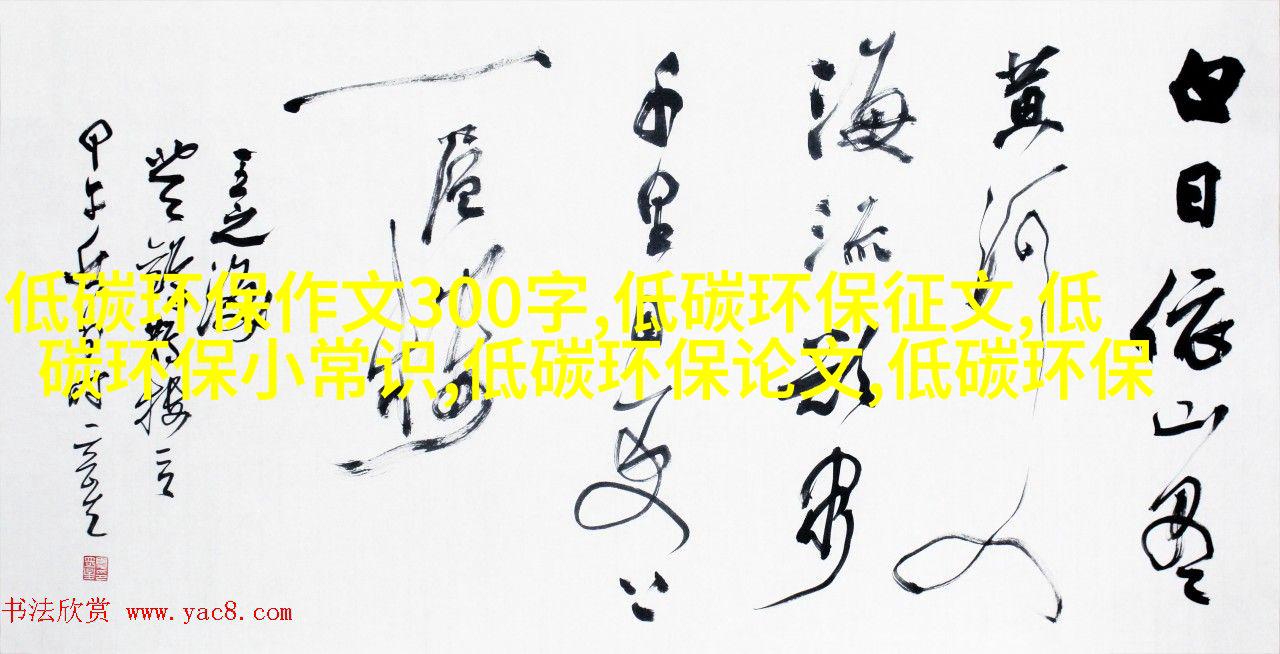 白日依山尽
黄河入
海流欲穷
千里目更上
一层楼
王之涣
甲午
低碳环保作文300字,低碳环保征文,低
碳环保小常识,低碳环保论文,低碳环保
书法欣赏 www.yac8.com